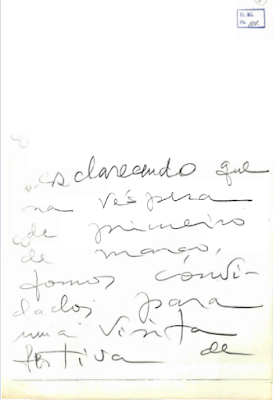 esclarecendo que
na véspera
de primeiro
de março,
fomos convi-
dados para
uma visita
festiva de